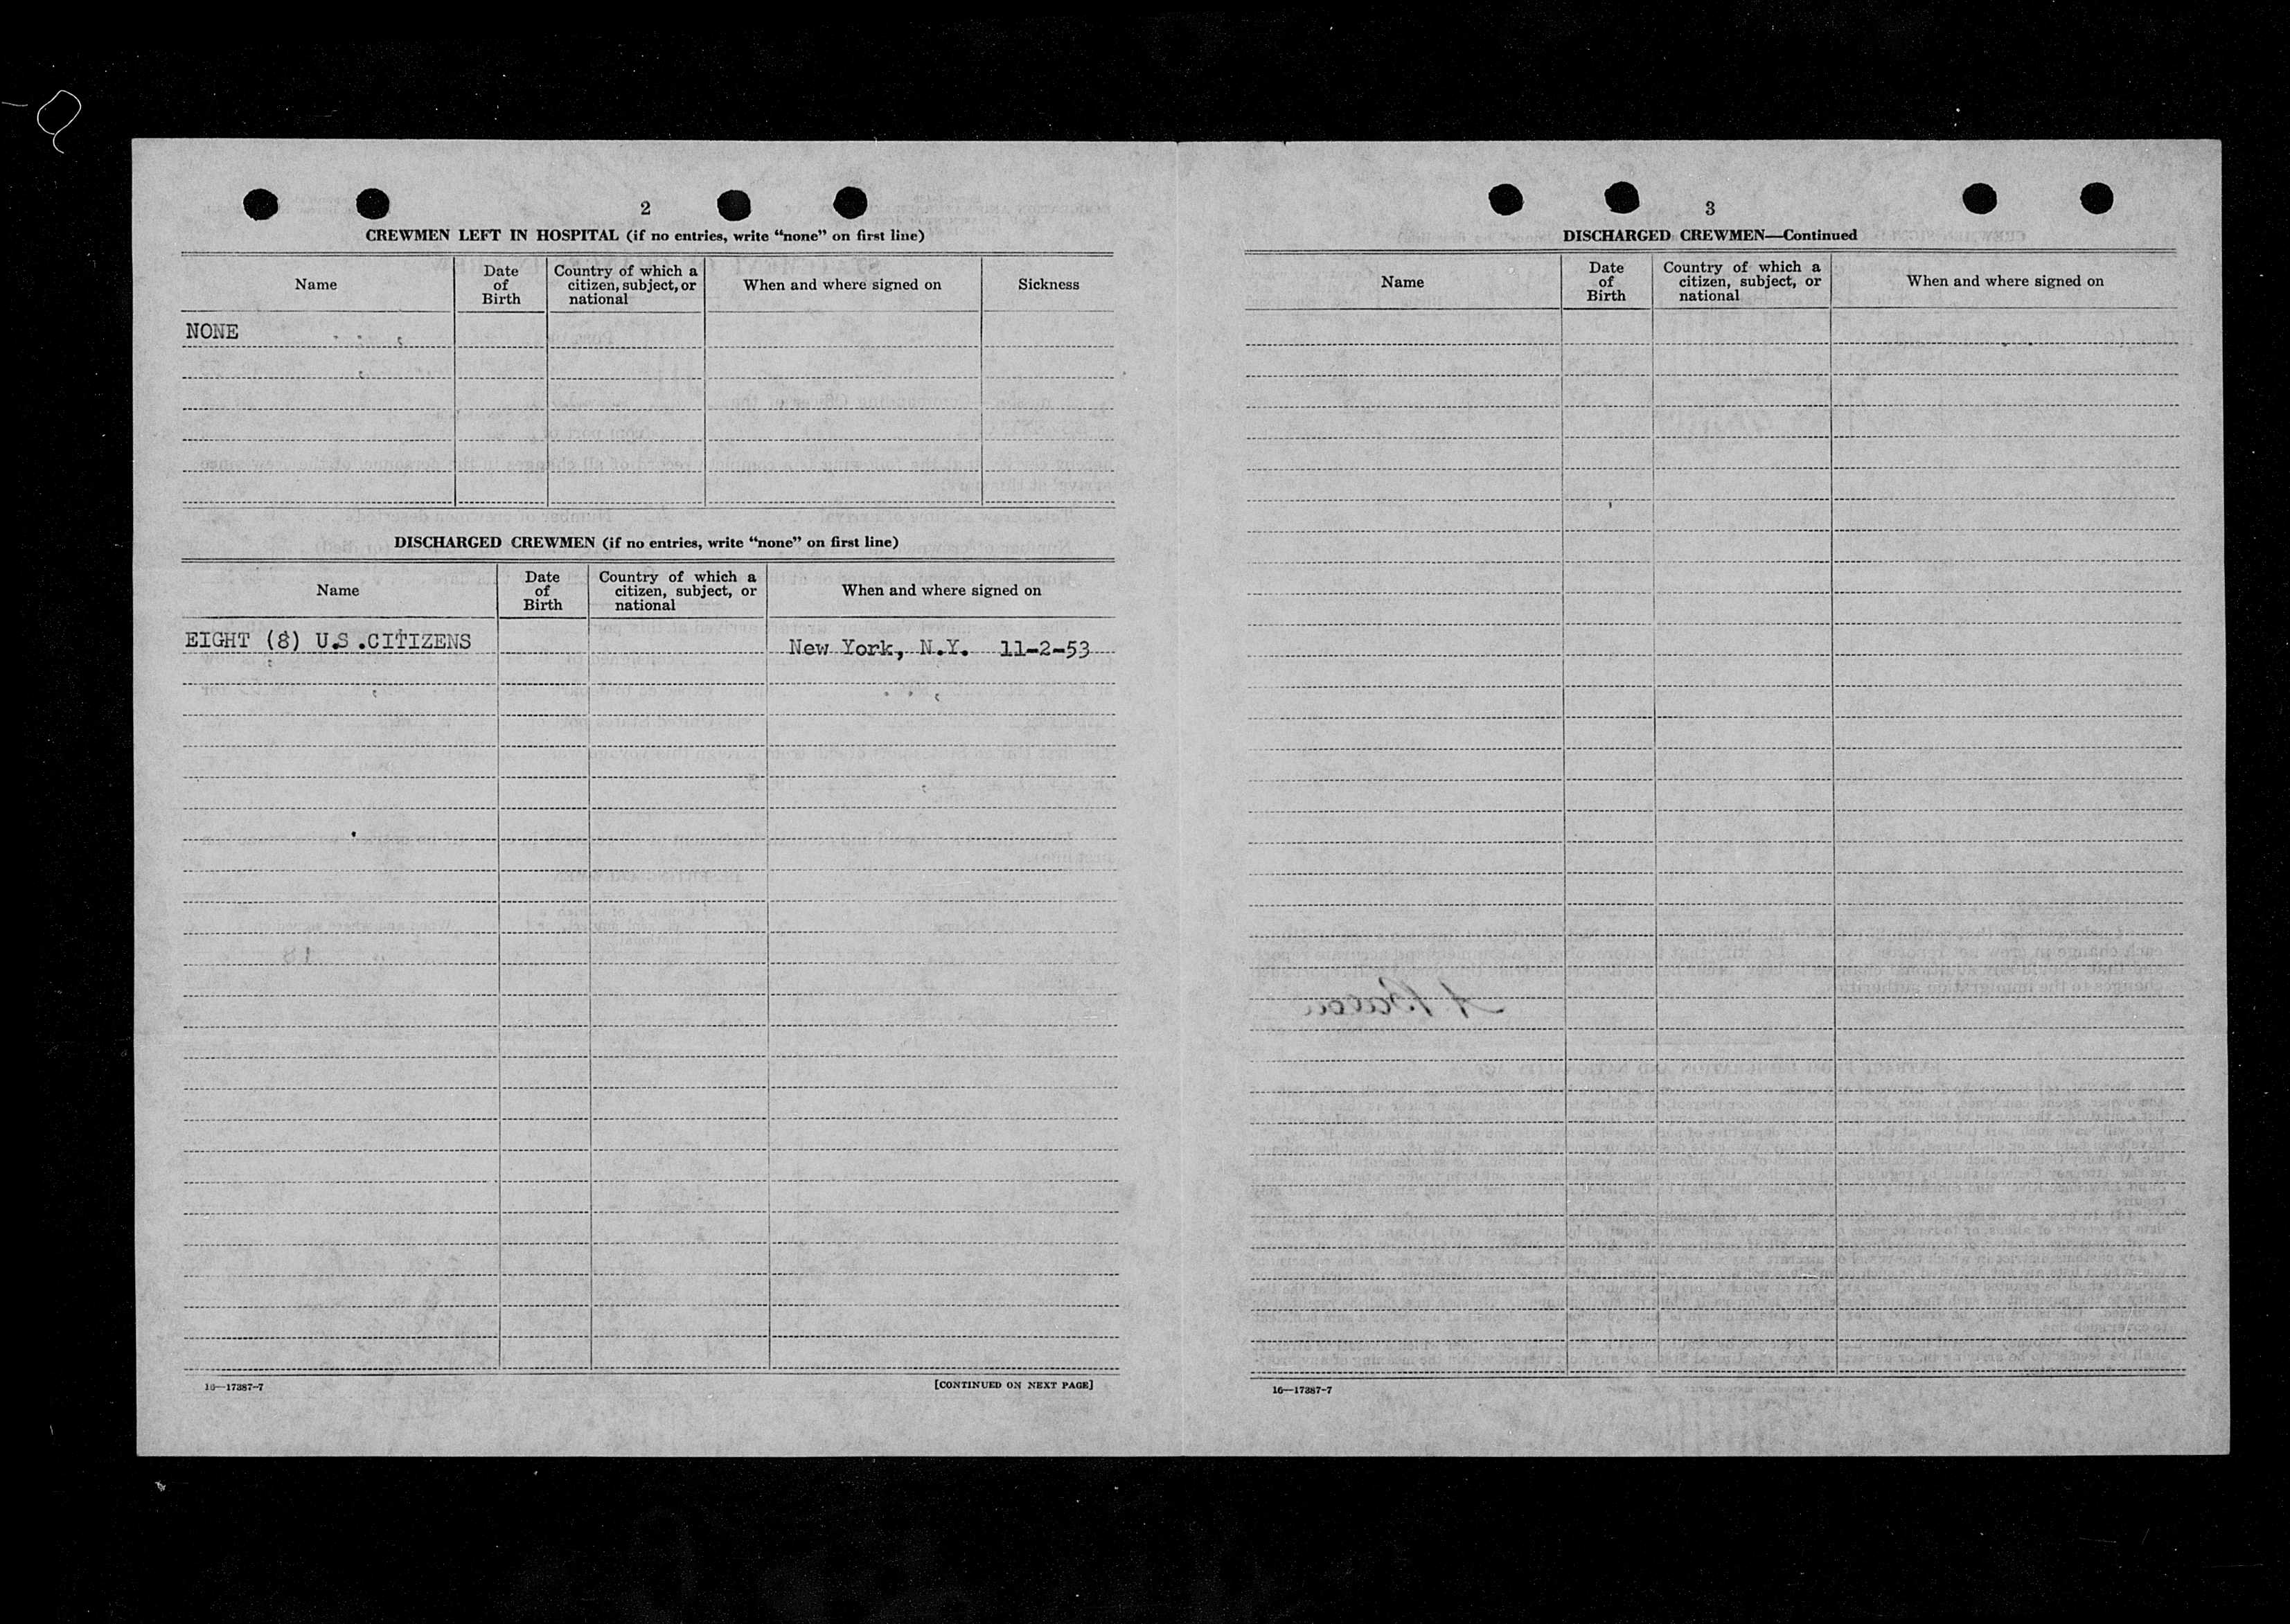 2
CREWMEN LEFT IN HOSPITAL (if no entries, write "none" on first line)
Name
Date of Birth
Country of which a citizen, subject, or national
When and where signed on
Sickness
NONE
DISCHARGED CREWMEN (if no entries, write "none" on first line)
Name
Date of Birth
Country of which a citizen, subject, or national
When and where signed on
EIGHT (8) U.S.CITIZENS
New York, N.Y. 11-2-53
16—17387-7
[CONTINUED ON NEXT PAGE]
3
DISCHARGED CREWMEN—Continued
Name
Date of Birth
Country of which a citizen, subject, or national
When and where signed on
16—17387-7